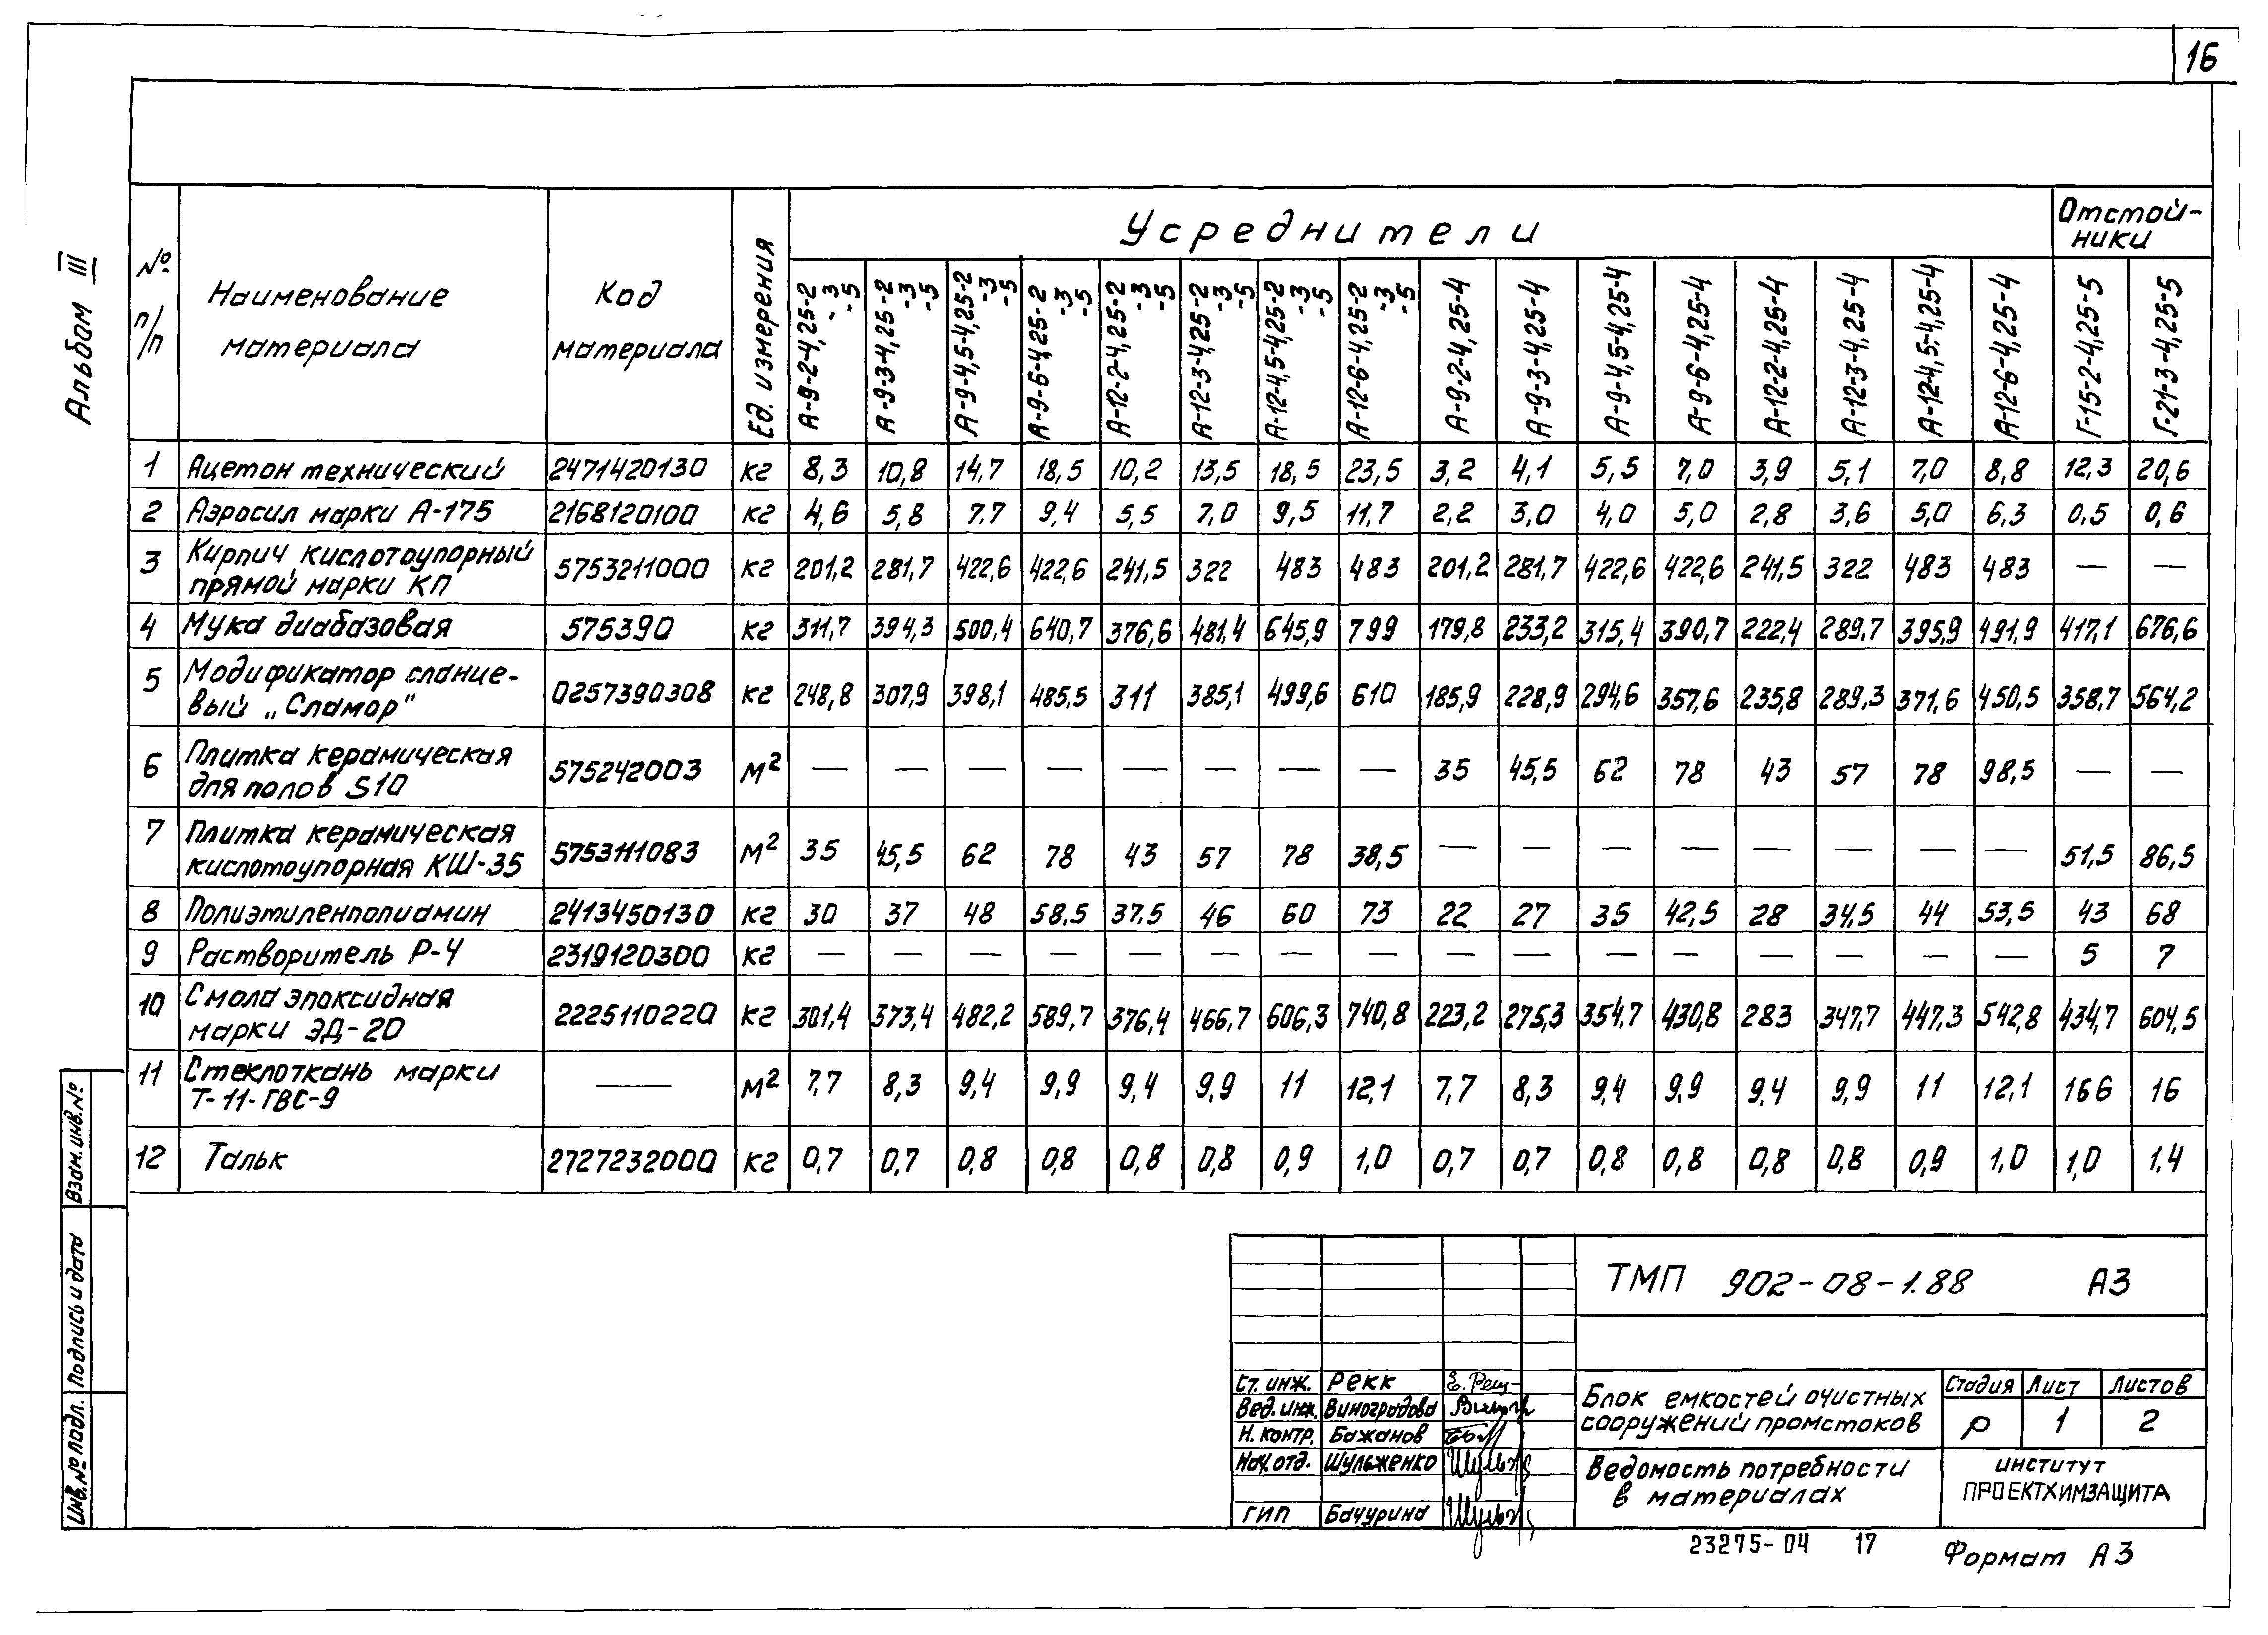 16
Альбом III
№ п/п
Наименование материала
Код материала
Ед. измерения
Усреднители
Отстой-
ники
А-9-2-4,25-2 -3 -5
А-9-3-4,25-2 -3 -5
А-9-4,5-4,25-2 -3 -5
А-9-6-4,25-2 -3 -5
А-12-2-4,25-2 -3 -5
А-12-3-4,25-2 -3 -5
А-12-4,5-4,25-2 -3 -5
А-12-6-4,25-2 -3 -5
А-9-2-4,25-4
А-9-3-4,25-4
А-9-4,5-4,25-4
А-9-6-4,25-4
А-12-2-4,25-4
А-12-3-4,25-4
А-12-4,5-4,25-4
А-12-6-4,25-4
Г-15-2-4,25-5
Г-21-3-4,25-5
1 Ацетон технический 2471420130 кг 8,3 10,8 14,7 18,5 10,2 13,5 18,5 23,5 3,2 4,1 5,5 7,0 3,9 5,1 7,0 8,8 12,3 20,6
2 Аэросил марки А-175 2168120100 кг 4,6 5,8 7.7 9,4 5,5 7,0 9,5 11,7 2,2 3,0 4,0 5,0 2,8 3,6 5,0 6,3 0,5 0,6
3 Кирпич кислотоупорный
прямой марки КП 5753211000 кг 201,2 281,7 422,6 422,6 241,5 322 483 483 201,2 281,7 422,6 422,6 241,5 322 483 483 — —
4 Мука диабазовая 575390 кг 311,7 394,3 500,4 640,7 376,6 481,4 645,9 799 179,8 233,2 315,4 390,7 222,4 289,7 395,9 491,9 417,1 676,6
5 Модификатор сланце-
вый „Сламор" 0257390308 кг 248,8 307,9 398,1 485,5 311 385,1 499,6 610 185,9 228,9 294,6 357,6 235,8 289,3 371,6 450,5 358,7 564,2
6 Плитка керамическая
для полов S10 575242003 м² — — — — — — — — 35 45,5 62 78 43 57 78 98,5 — —
7 Плитка керамическая
кислотоупорная КШ-35 5753111083 м² 35 45,5 62 78 43 57 78 38,5 — — — — — — — — 51,5 86,5
8 Полиэтиленполиамин 2413450130 кг 30 37 48 58,5 37.5 46 60 73 22 27 35 42,5 28 34,5 44 53,5 43 68
9 Растворитель Р-4 2319120300 кг — — — — — — — — — — — — — — — — 5 7
10 Смола эпоксидная
марки ЭД-20 2225110220 кг 301,4 373,4 482,2 589,7 376,4 466,7 606,3 740,8 223,2 275,3 354,7 430,8 283 347,7 447,3 542,8 434,7 604,5
11 Стеклоткань марки
Т-11-ГВС-9 — м² 7,7 8,3 9,4 9,9 9,4 9,9 11 12,1 7,7 8,3 9,4 9,9 9,4 9,9 11 12,1 166 16
12 Тальк 2727232000 кг 0,7 0,7 0,8 0,8 0,8 0,8 0,9 1,0 0,7 0,7 0,8 0,8 0,8 0,8 0,9 1,0 1,0 1.4
Взам.инв.№
Подпись и дата
Инв.№ подл.
ТМП 902-08-1.88 А3
Ст. инж. Рекк
Вед. инж. Виноградова
Н. контр. Бажанов
Нач. отд. Шульженко
ГИП Бачурина
Блок емкостей очистных
сооружений промстоков
Стадия Лист Листов
Р 1 2
Ведомость потребности
в материалах
институт
ПРОЕКТХИМЗАЩИТА
23275-04 17
Формат А3